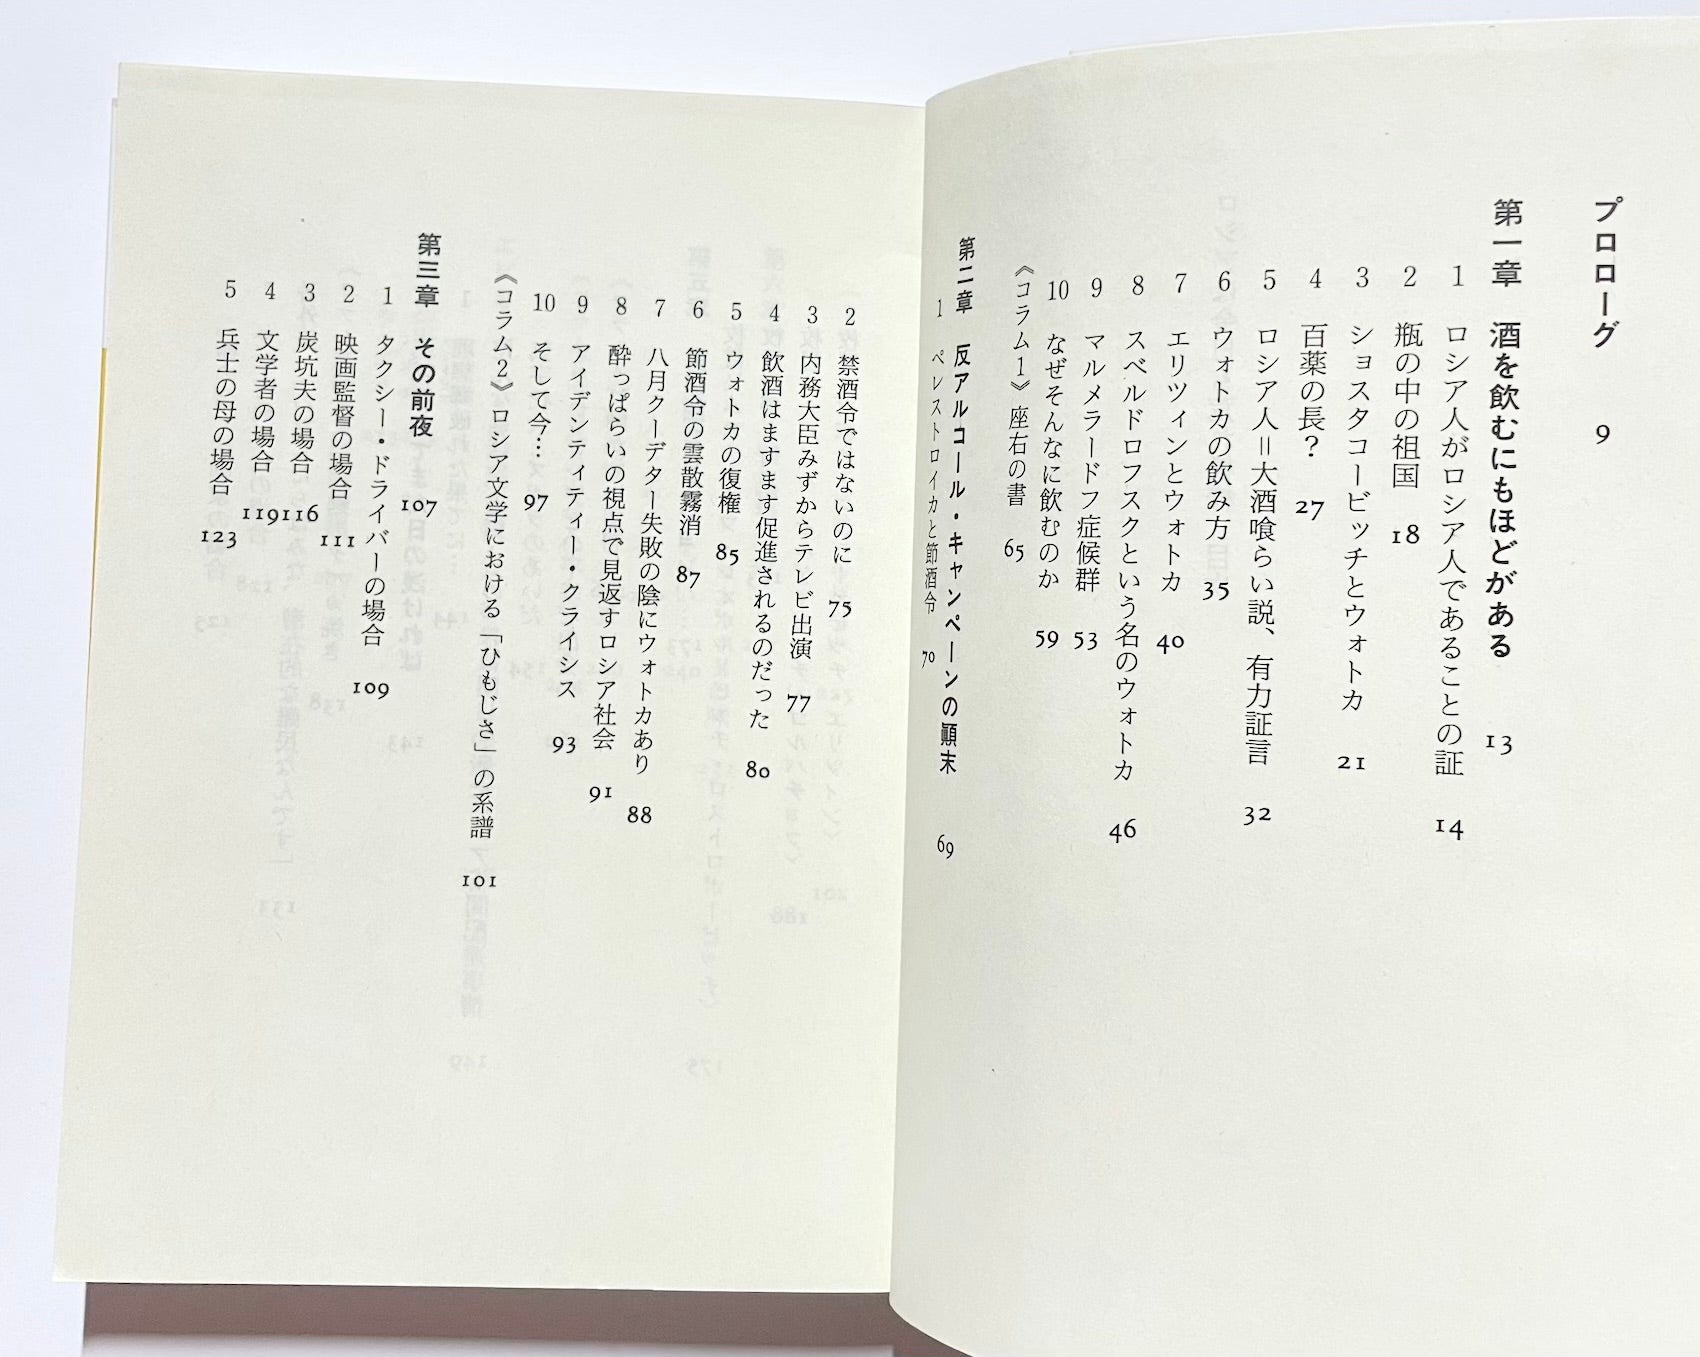 プロローグ 9
第一章 酒を飲むにもほどがある 13
1 ロシア人がロシア人であることの証 14
2 瓶の中の祖国 18
3 ショスタコービッチとウォトカ 21
4 百薬の長? 27
5 ロシア人=大酒喰らい説、有力証言 32
6 ウォトカの飲み方 35
7 エリツィンとウォトカ 40
8 スベルドロフスクという名のウォトカ 46
9 マルメラードフ症候群 53
10 なぜそんなに飲むのか 59
《コラム1》座右の書 65
第二章 反アルコール・キャンペーンの顚末 69
1 ペレストロイカと節酒令 70
2 禁酒令ではないのに 75
3 内務大臣みずからテレビ出演 77
4 飲酒はますます促進されるのだった 80
5 ウォトカの復権 85
6 節酒令の雲散霧消 87
7 八月クーデター失敗の陰にウォトカあり 88
8 酔っぱらいの視点で見返すロシア社会 91
9 アイデンティティー・クライシス 93
10 そして今… 97
《コラム2》ロシア文学における「ひもじさ」の系譜 101
第三章 その前夜 107
1 タクシー・ドライバーの場合 109
2 映画監督の場合 111
3 炭坑夫の場合 116
4 文学者の場合 119
5 兵士の母の場合 123